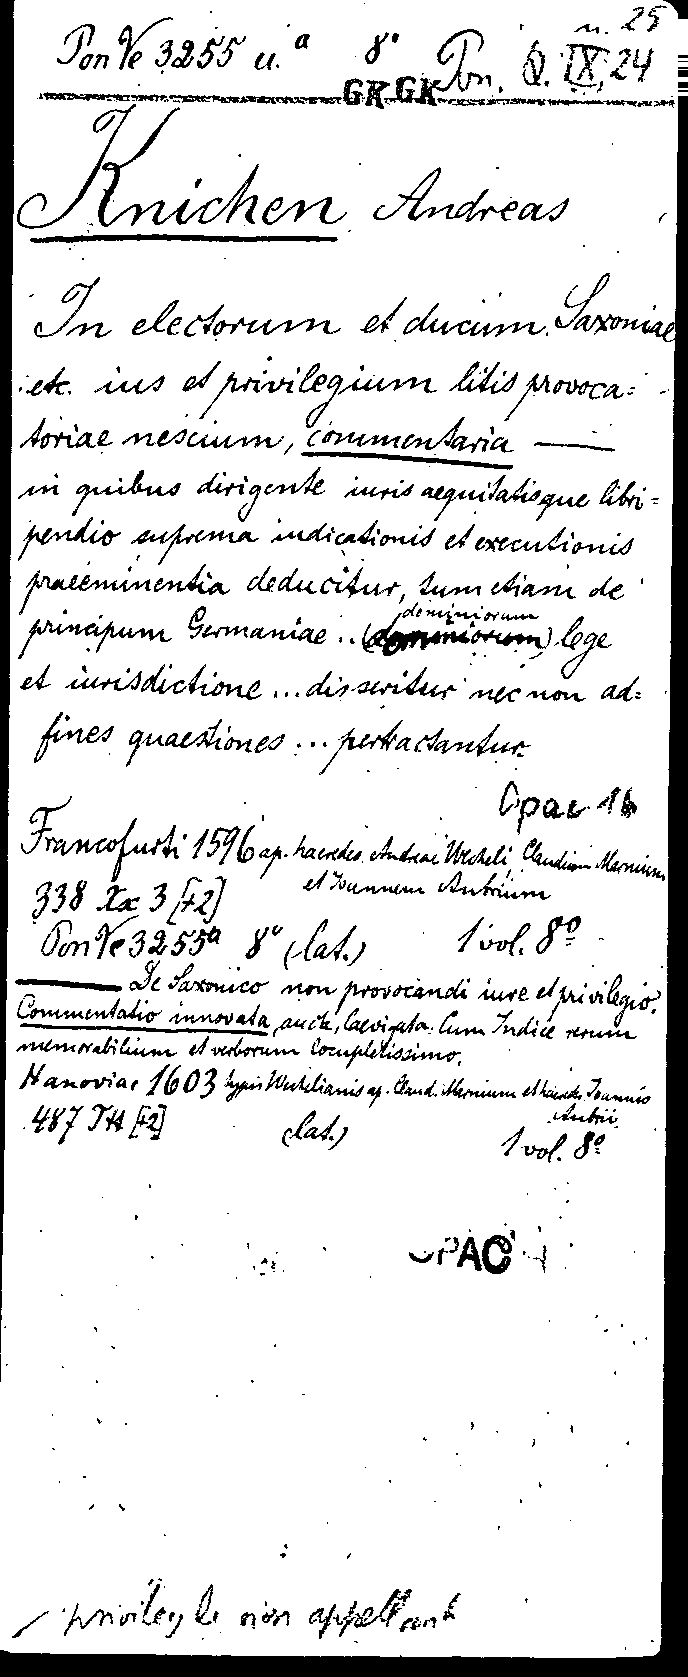 u. 25
Pon Ve 3255 u. a 8° Pon. Q. IX, 24
GK GK
Knichen Andreas
In electorum et ducum Saxoniae
etc. ius et privilegium litis provoca=
toriae nescium, commentaria —
in quibus dirigente iuris aequitatisque libri=
pendio suprema iudicationis et executionis
praeeminentia deducitur, tum etiam de
dominiorum
principum Germaniae .. (dominiorum) lege
et iurisdictione ... disseritur nec non ad=
fines quaestiones ... pertractantur.
Opac
Francofurti 1596 ap. haeredes Andreae Wecheli, Claudium Marnium
et Ioannem Aubrium
338 Xx 3 [+2]
Pon Ve 3255a 8° (lat.) 1 vol. 8°
— De Saxonico non provocandi iure et privilegio.
Commentatio innovata, aucta, laevigata. Cum Indice rerum
memorabilium et verborum locupletissimo.
Hanoviae 1603 typis Wechelianis ap. Claud. Marnium et haered. Ioannis
Aubrii
487 [+2] (lat.) 1 vol. 8°
OPAC
privileg de non appellant